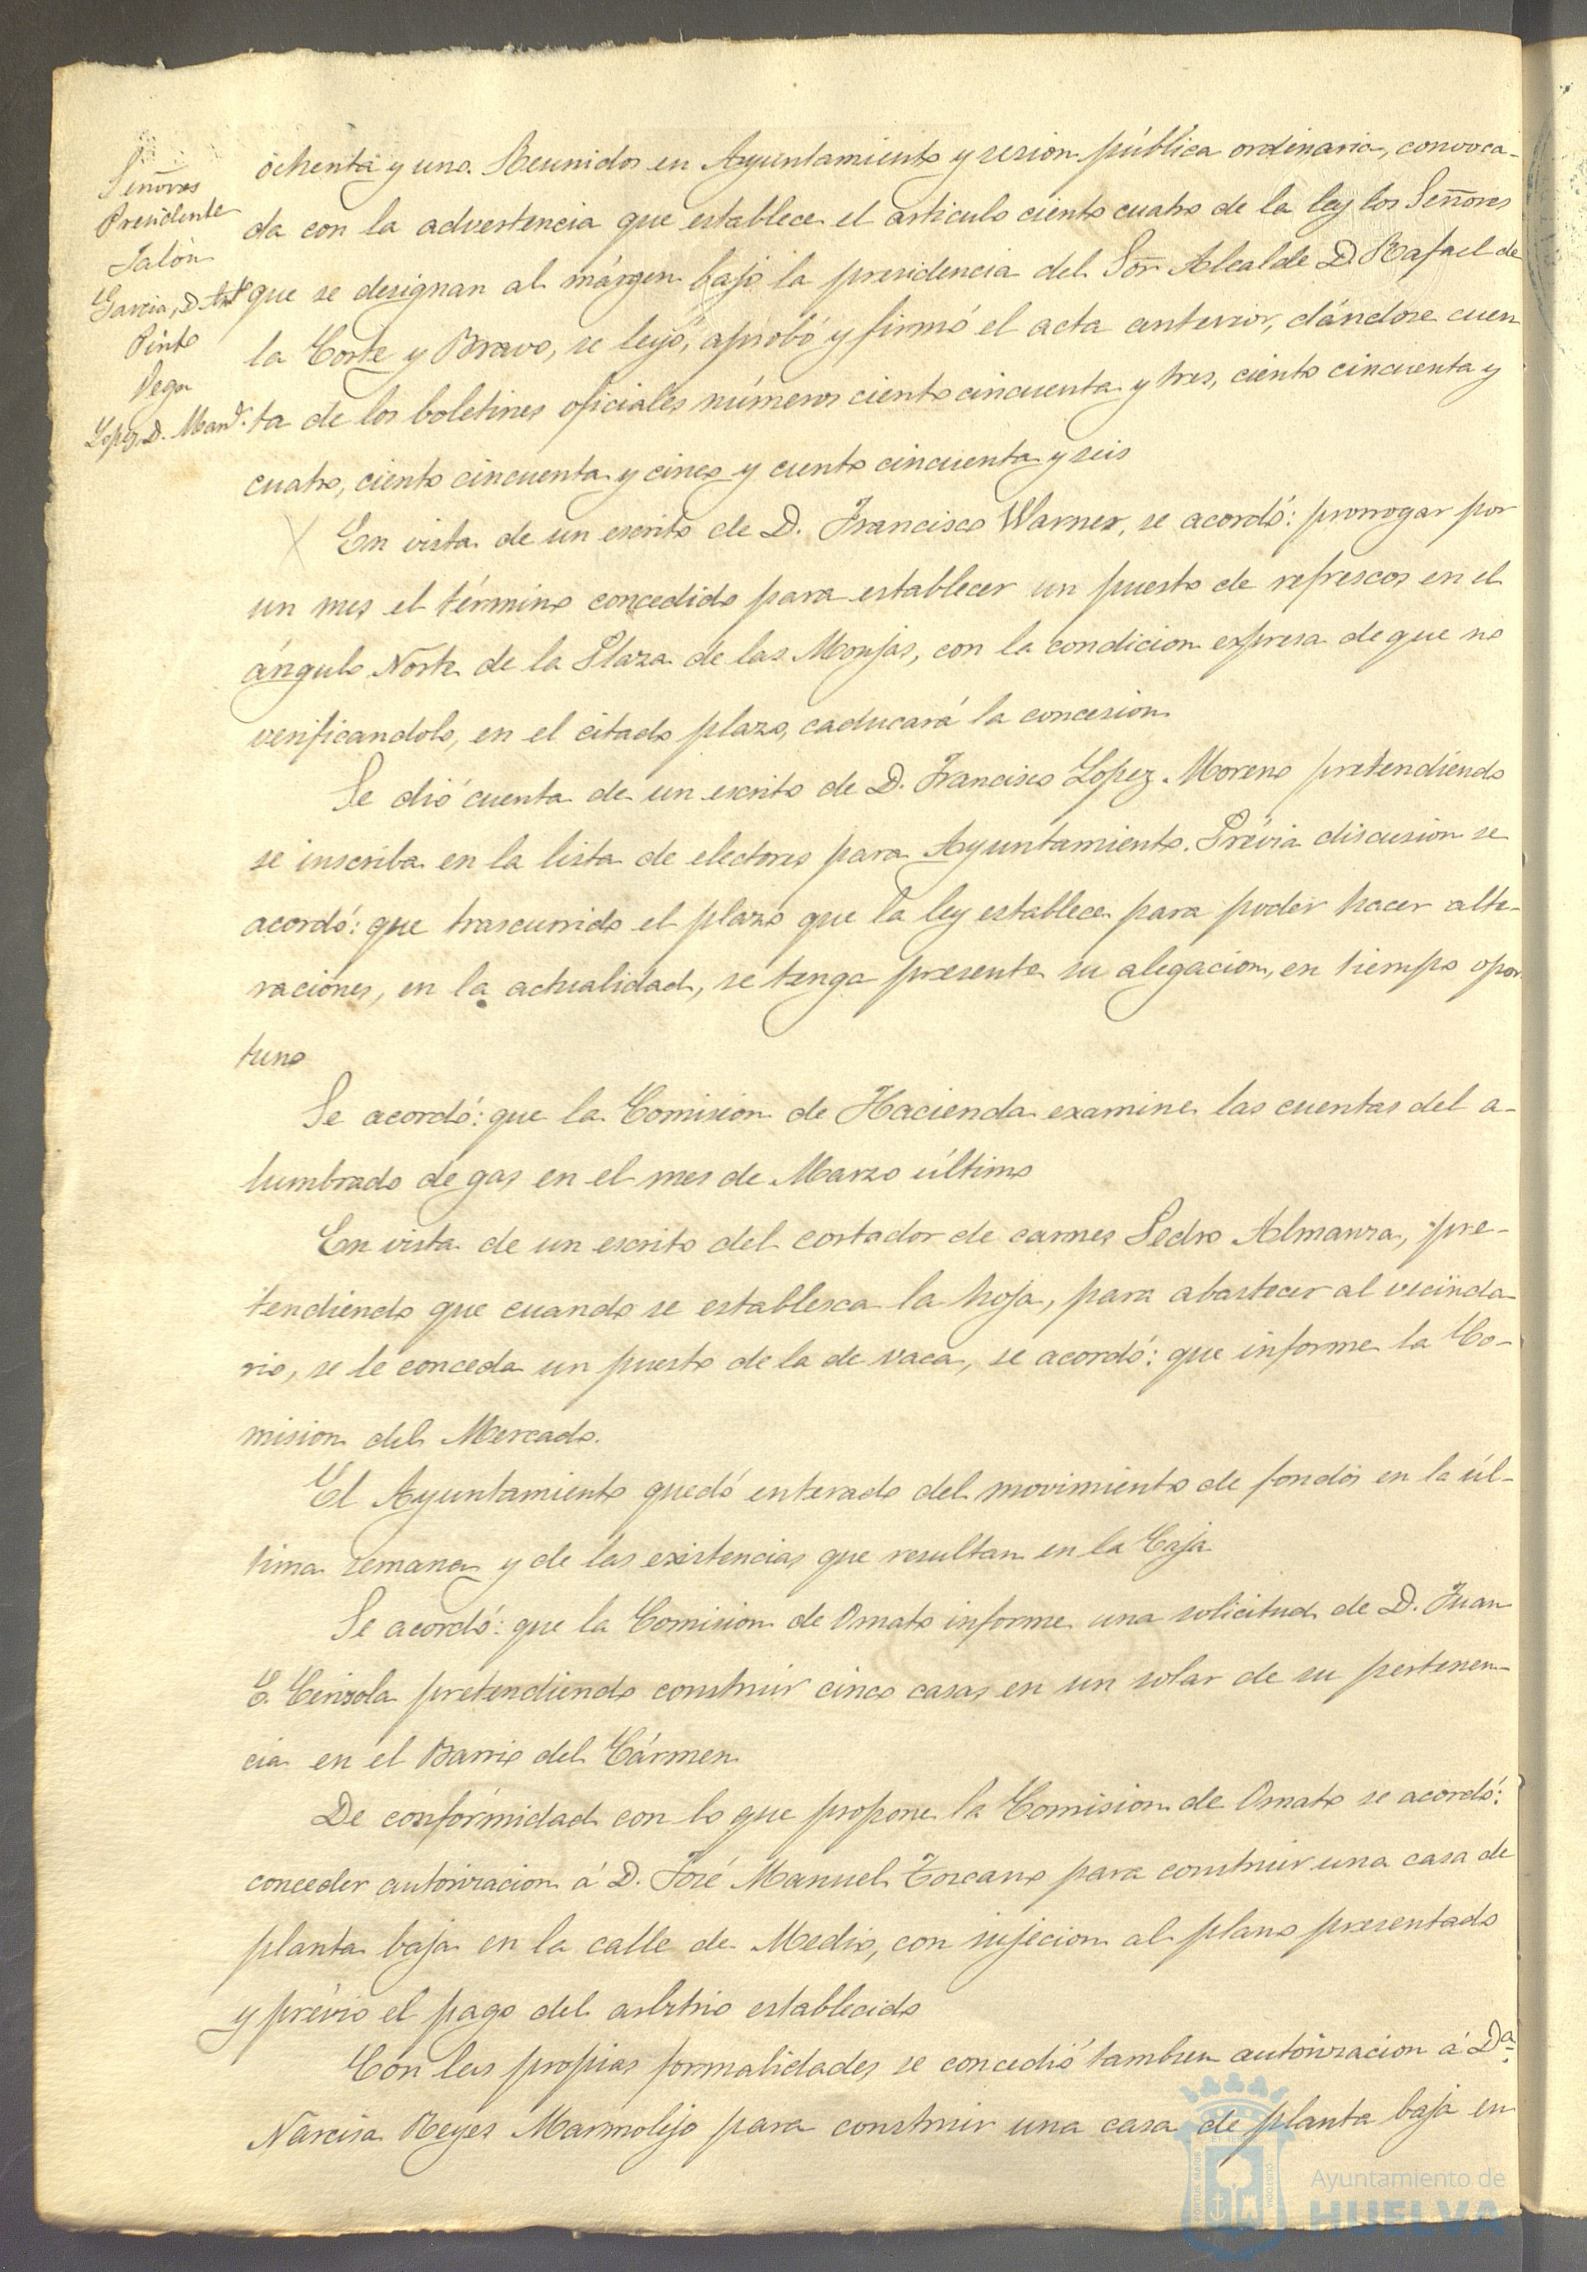 Señores
Presidente
Jalón
Garcia, D. Ant.º
Pinto
Vega
Lopez, D. Man.l
ochenta y uno. Reunidos en Ayuntamiento y sesion pública ordinaria, convoca-
da con la advertencia que establece el articulo ciento cuatro de la ley los Señores
que se designan al márgen bajo la presidencia del Sor. Alcalde D. Rafael de
la Corte y Bravo, se leyó, aprobó y firmó el acta anterior, dándose cuen
ta de los boletines oficiales números ciento cincuenta y tres, ciento cincuenta y
cuatro, ciento cincuenta y cinco y ciento cincuenta y seis
En vista de un escrito de D. Francisco Warner, se acordó: prorrogar por
un mes el término concedido para establecer un puesto de refrescos en el
ángulo Norte de la Plaza de las Monjas, con la condicion expresa de que no
verificandolo, en el citado plazo, caducará la concesion
Se dió cuenta de un escrito de D. Francisco Lopez Moreno pretendiendo
se inscriba en la lista de electores para Ayuntamiento. Prévia discusion se
acordó: que trascurrido el plazo que la ley establece para poder hacer alte-
raciones, en la actualidad, se tenga presente su alegacion, en tiempo opor
tuno
Se acordó: que la Comision de Hacienda examine las cuentas del a-
lumbrado de gas en el mes de Marzo último
En vista de un escrito del cortador de carnes Pedro Almanza, pre-
tendiendo que cuando se establesca la hoja, para abastecer al vecinda
rio, se le conceda un puesto de la de vaca, se acordó: que informe la Co-
mision del Mercado.
El Ayuntamiento quedó enterado del movimiento de fondos en la úl-
tima semana y de las existencias que resultan en la Caja
Se acordó: que la Comision de Ornato informe una solicitud de D. Juan
C. Cinzola pretendiendo construir cinco casas en un solar de su pertenen-
cia en el Barrio del Cármen
De conformidad con lo que propone la Comision de Ornato se acordó:
conceder autorizacion á D. José Manuel Toscano para construir una casa de
planta baja en la calle de Medio, con sujecion al plano presentado
y prévio el pago del arbitrio establecido
Con las propias formalidades se concedió tambien autorizacion á Dª.
Narcisa Reyes Marmolejo para construir una casa de planta baja en
Ayuntamiento de
HUELVA